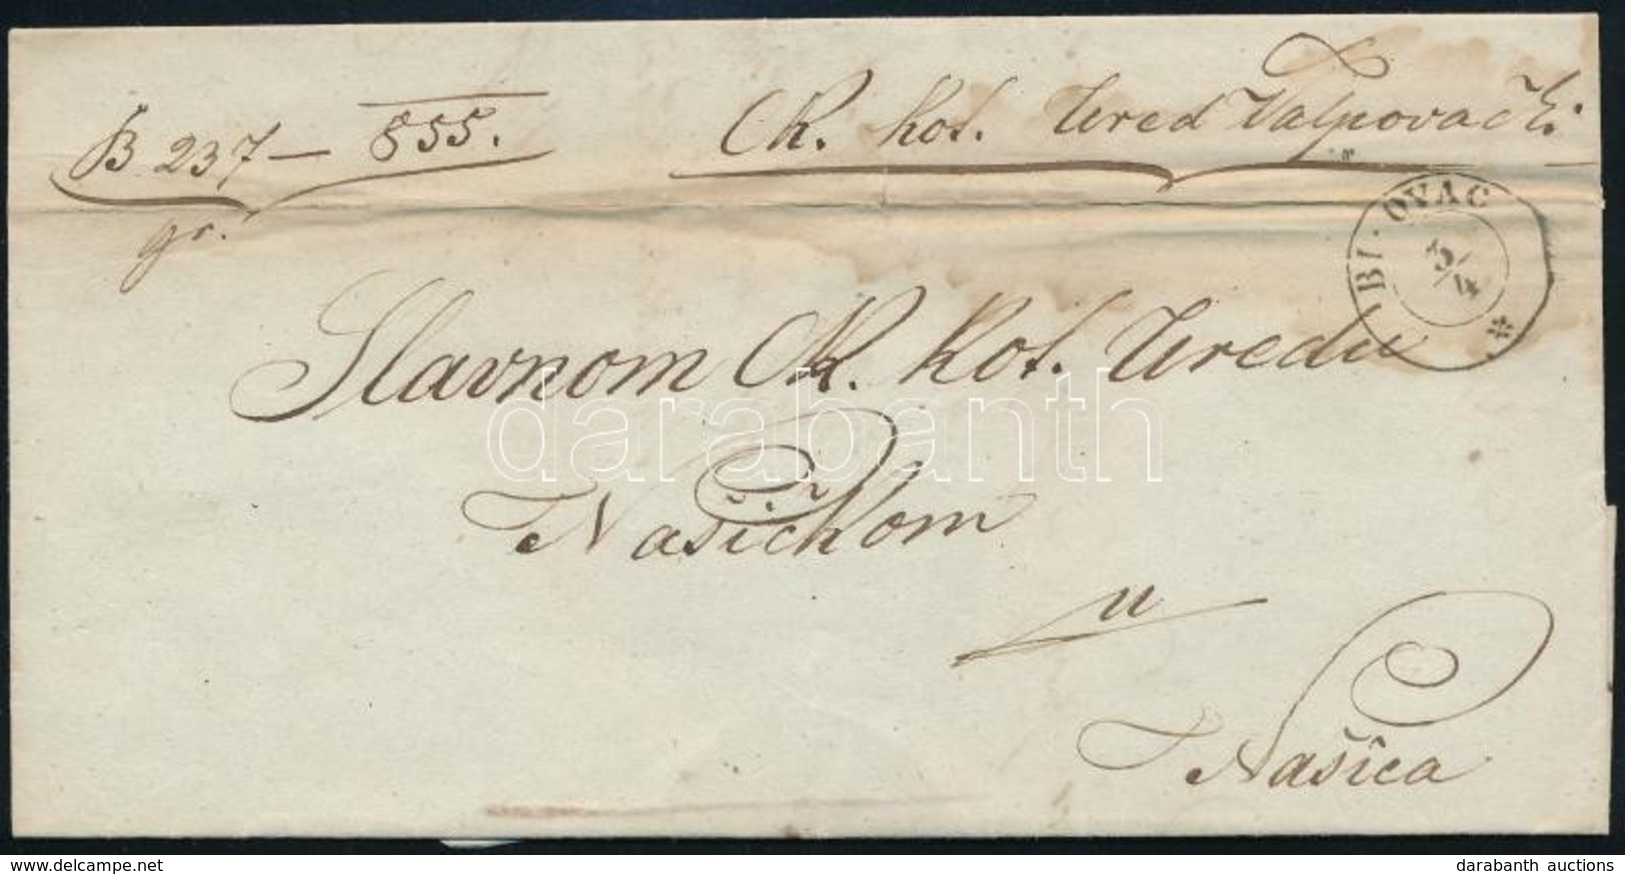 B 237 – 855.
gr.
CK. Kot. Ured Valpovački
BI·OVAC
5/4
Slavnom CK. Kot. Uredu
Našičkom
u
Našica
darabanth
www.delcampe.net
darabanth auctions